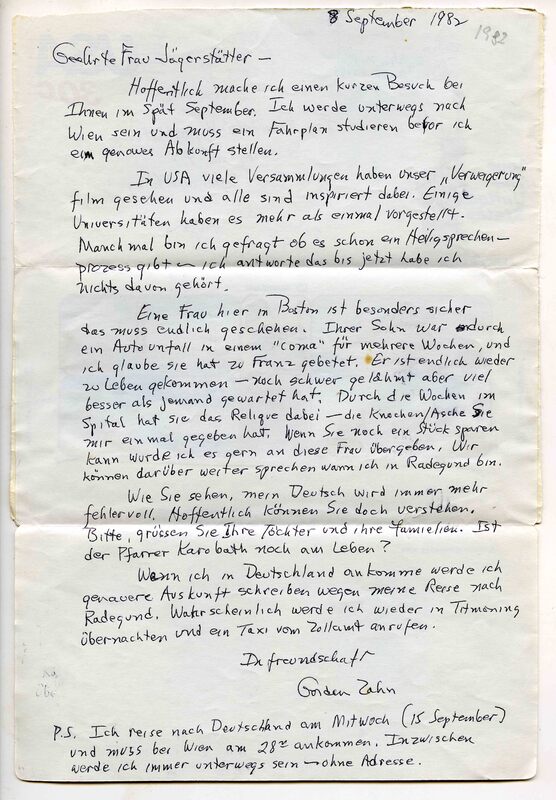 8 September 1982
1982
Geehrte Frau Jägerstätter —
Hoffentlich mache ich einen kurzen Besuch bei
Ihnen im Spät September. Ich werde unterwegs nach
Wien sein und muss ein Fahrplan studieren bevor ich
ein genaues Abkunft stellen.
In USA viele Versammlungen haben unser „Verweigerung"
film gesehen und alle sind inspiriert dabei. Einige
Universitäten haben es mehr als einmal vorgestellt.
Manchmal bin ich gefragt ob es schon ein Heiligsprechen-
prozess gibt — ich antworte das bis jetzt habe ich
nichts davon gehört.
Eine Frau hier in Boston ist besonders sicher
das muss endlich geschehen. Ihrer Sohn war durch
ein Auto unfall in einem "coma" für mehrere Wochen, und
ich glaube sie hat zu Franz gebetet. Er ist endlich wieder
zu Leben gekommen — noch schwer gelähmt aber viel
besser als jemand gewartet hat. Durch die Wochen im
Spital hat sie das Relique dabei — die Knochen/Asche Sie
mir einmal gegeben hat. Wenn Sie noch ein Stück sparen
kann wurde ich es gern an diese Frau übergeben. Wir
können darüber weiter sprechen wann ich in Radegund bin.
Wie Sie sehen, mein Deutsch wird immer mehr
fehlervoll. Hoffentlich können Sie doch verstehen.
Bitte, grüssen Sie Ihre Töchter und ihre Familien. Ist
der Pfarrer Karobath noch am Leben?
Wenn ich in Deutschland ankomme werde ich
genauere Auskunft schreiben wegen meine Reise nach
Radegund. Wahrscheinlich werde ich wieder in Titmoning
übernachten und ein Taxi vom Zollamt anrufen.
In freundschaft
Gordon Zahn
P.S. Ich reise nach Deutschland am Mitwoch (15 September)
und muss bei Wien am 28 ankommen. Inzwischen
werde ich immer unterwegs sein — ohne Adresse.